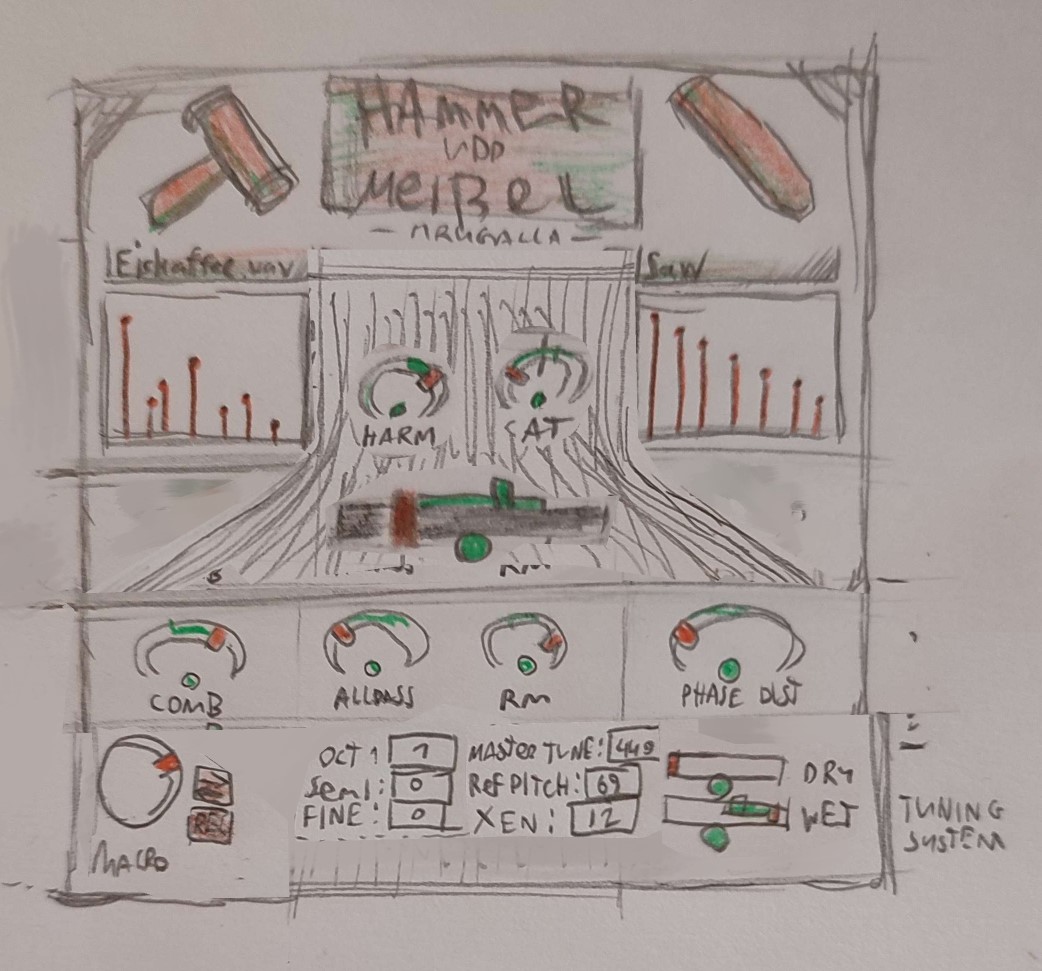 HAMMER
UDD
MEIßEL
Eiskaffee.wav
Saw
HARM
SAT
RM
COMB
ALLPASS
RM
PHASE DIST
OCT 1 1
Semi: 0
FINE: 0
MASTER TUNE:
Ref PITCH: 69
XEN: 12
DRY
WET
MACRO
REC
TUNING
SYSTEM